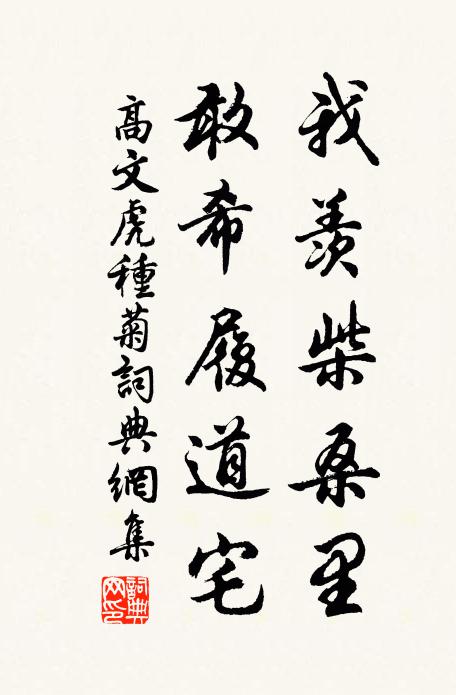 我羨柴桑里
敢希履道宅
高文虎種菊詞典網集
詞典网印